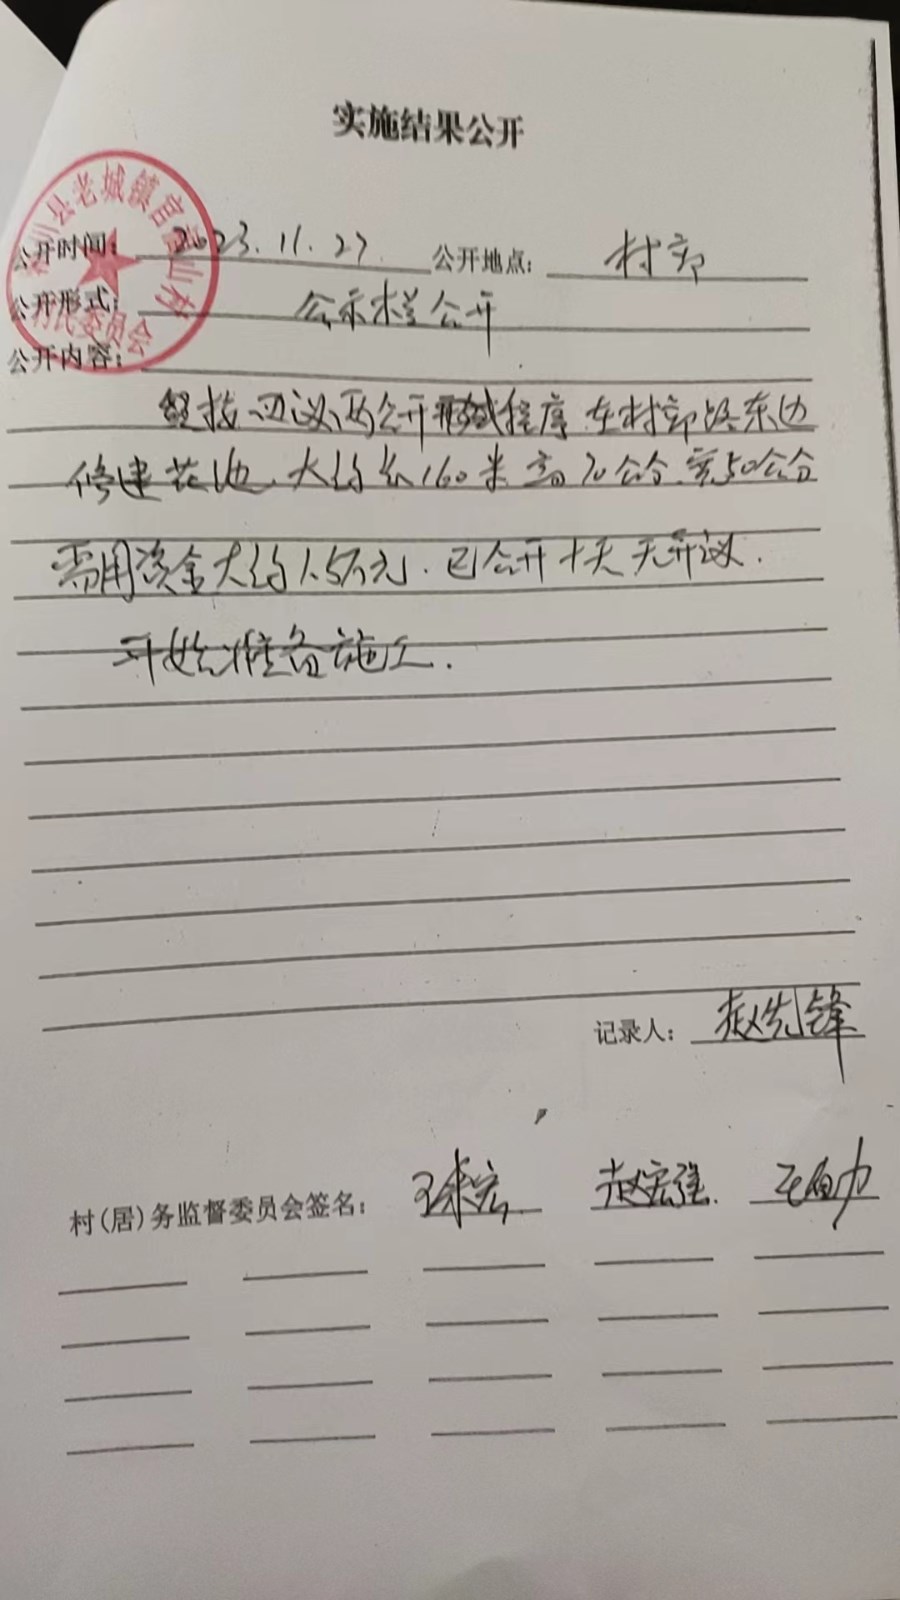 实施结果公开
川县老城镇官 山村
村民委员会
公开时间: 2023.11.27 公开地点: 村部
公开形式: 公示栏公开
公开内容:
按四议两公开 程序 在村部 东边
修建花池 大约长160米 高70公分 宽50公分
需用资金大约1.5万元. 已公开十天 无异议.
开始准备施工.
记录人: 赵先锋
村(居)务监督委员会签名: 王 宏 赵宏强